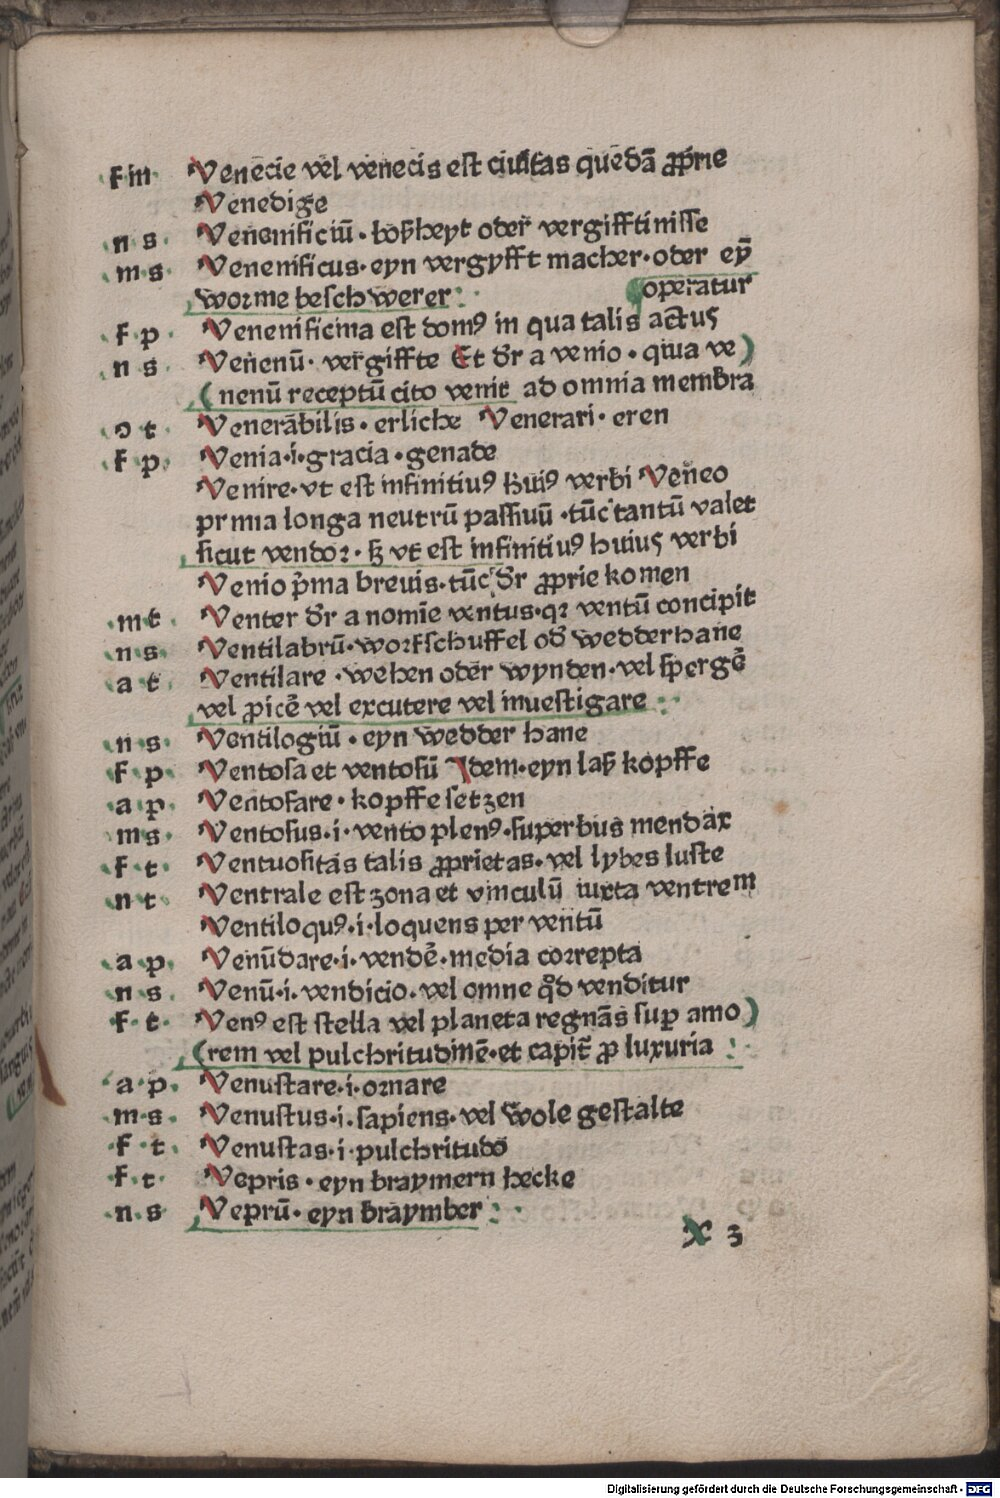 f m Venecie vel venecis est ciuitas quedā ꝓprie
Venedige
n s Venenificiū · boßheyt oder vergifftinisse
m s Venenificus · eyn vergyfft macher · oder eȳ
worme beschwerer : operatur
f p Venenificina est domꝰ in qua talis actus
n s Venenū · vergiffte Et dr̄ a venio · quia ve )
( nenū receptū cito venit ad omnia membra
o t Venerābilis · erliche Venerari · eren
f p Venia · i · gracia · genade
Venire · vt est infinitiuꝰ huiꝰ verbi Veneo
prima longa neutrū passiuū · tūc tantū valet
sicut vendor · sꝫ vt est infinitiuꝰ huius verbi
Venio p̄ma breuis · tūc dr̄ ꝓprie komen
m t Venter dr̄ a nomīe ventus · qꝛ ventū concipit
n s Ventilabrū · worfschuffel od̄ wedderhane
a t Ventilare · wehen oder wynden · vel spergē
vel ꝓicē vel excutere vel inuestigare :
n s Ventilogiū · eyn wedder hane
f p Ventosa et ventosū Idem · eyn laß kopffe
a p Ventosare · kopffe setzen
m s Ventosus · i · vento plenꝰ · superbus mendax
f t Ventuositas talis ꝓprietas · vel lybes luste
n t Ventrale est zona et vinculū iuxta ventrem
Ventiloquꝰ · i · loquens per ventū
a p Venūdare · i · vendē · media correpta
n s Venū · i · vendicio · vel omne qd̄ venditur
f t Venꝰ est stella vel planeta regnās sup amo )
( rem vel pulchritudinē · et capit̄ ꝓ luxuria :
a p Venustare · i · ornare
m s Venustus · i · sapiens · vel wole gestalte
f t Venustas · i · pulchritudo
f t Vepris · eyn braymern hecke
n s Veprū · eyn braymber :
x 3
Digitalisierung gefördert durch die Deutsche Forschungsgemeinschaft - DFG